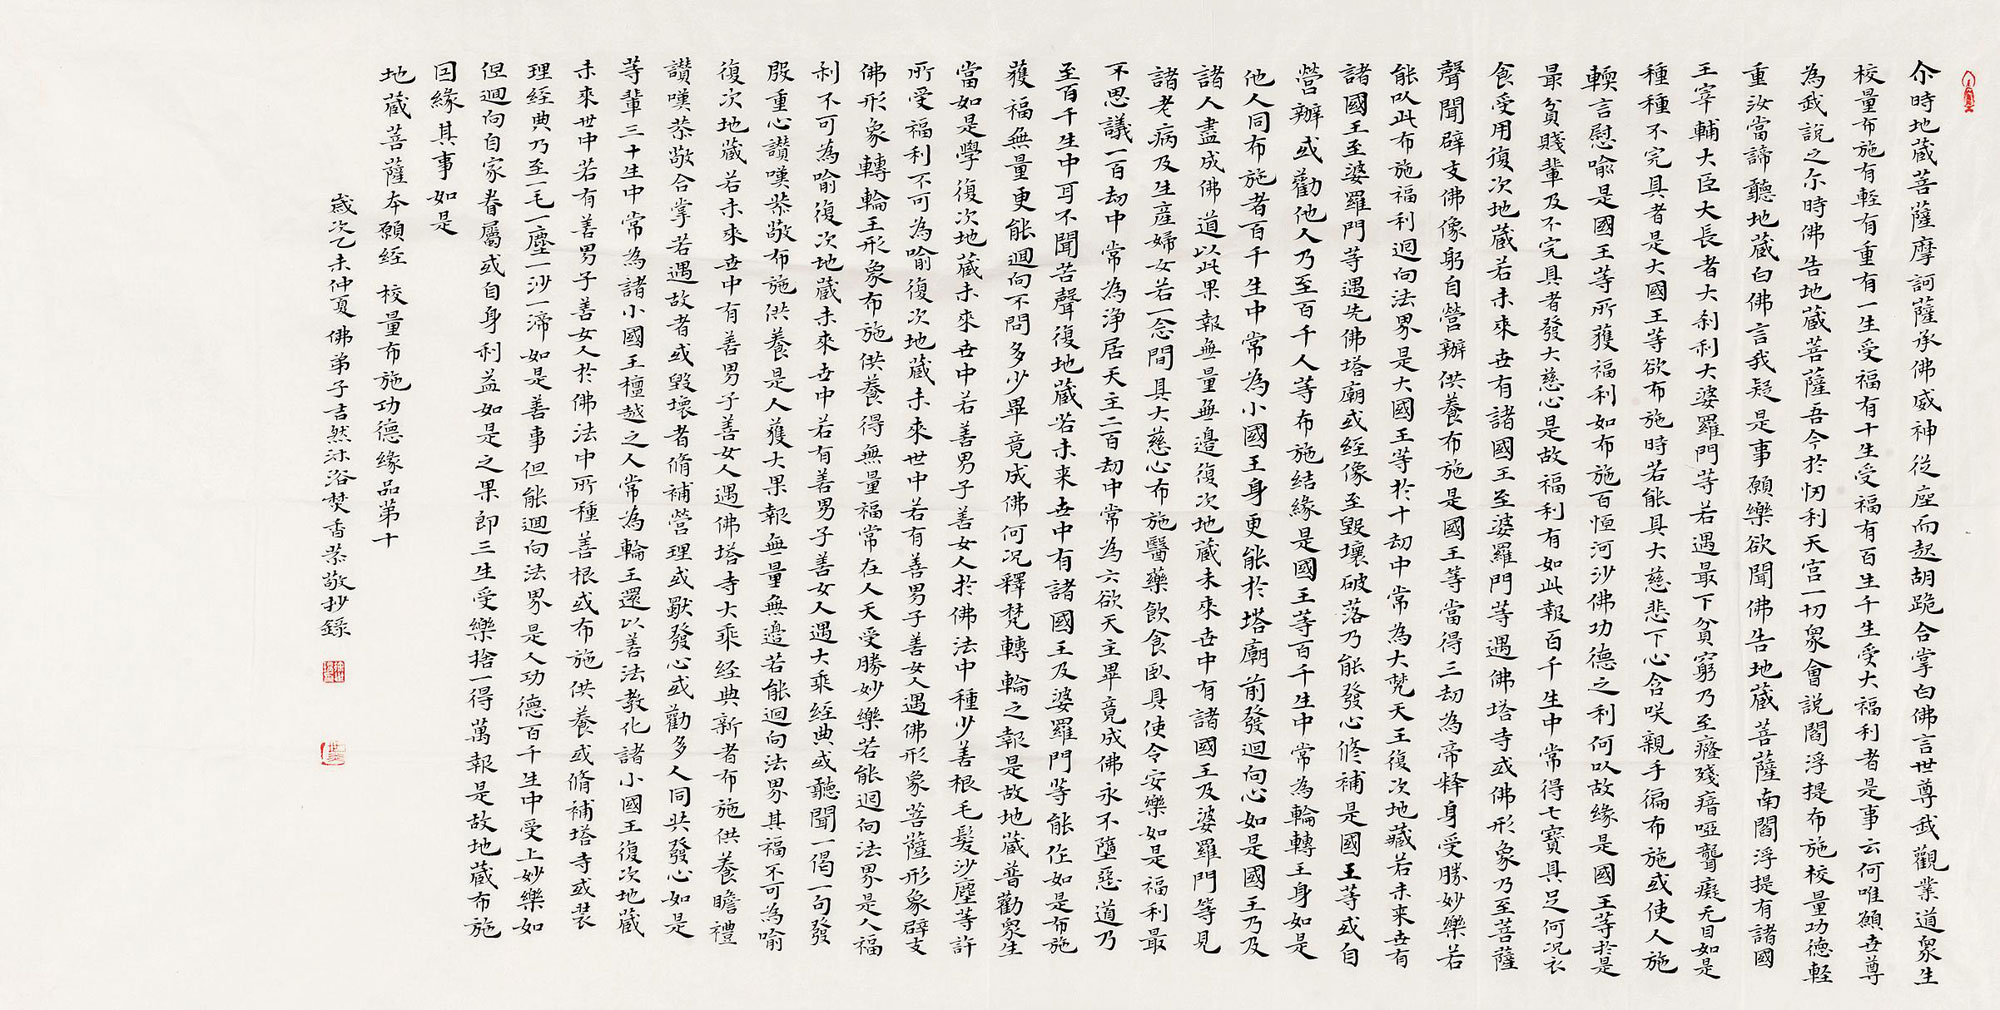 尒時地藏菩薩摩訶薩承佛威神從座而起胡跪合掌白佛言世尊我觀業道眾生
校量布施有輕有重有一生受福有十生受福有百生千生受大福利者是事云何唯願世尊
為我說之尒時佛告地藏菩薩吾今於忉利天宮一切眾會說閻浮提布施校量功德輕
重汝當諦聽地藏白佛言我疑是事願樂欲聞佛告地藏菩薩南閻浮提有諸國
王宰輔大臣大長者大刹利大婆羅門等若遇最下貧窮乃至癃殘瘖啞聾癡无目如是
種種不完具者是大國王等欲布施時若能具大慈悲下心含咲親手徧布施或使人施
輭言慰喻是國王等所獲福利如布施百恒河沙佛功德之利何以故緣是國王等於是
最貧賤輩及不完具者發大慈心是故福利有如此報百千生中常得七寶具足何況衣
食受用復次地藏若未來世有諸國王至婆羅門等遇佛塔寺或佛形象乃至菩薩
聲聞辟支佛像躬自營辦供養布施是國王等當得三劫為帝釋身受勝妙樂若
能以此布施福利迴向法界是大國王等於十劫中常為大梵天王復次地藏若未來世有
諸國王至婆羅門等遇先佛塔廟或經像至毀壞破落乃能發心修補是國王等或自
營辦或勸他人乃至百千人等布施結緣是國王等百千生中常為輪轉王身如是
他人同布施者百千生中常為小國王身更能於塔廟前發迴向心如是國王乃及
諸人盡成佛道以此果報無量無邊復次地藏未來世中有諸國王及婆羅門等見
諸老病及生產婦女若一念間具大慈心布施醫藥飲食臥具使令安樂如是福利最
不思議一百劫中常為淨居天主二百劫中常為六欲天主畢竟成佛永不墮惡道乃
至百千生中耳不聞苦聲復地藏若未來世中有諸國王及婆羅門等能作如是布施
獲福無量更能迴向不問多少畢竟成佛何況釋梵轉輪之報是故地藏普勸眾生
當如是學復次地藏未來世中若善男子善女人於佛法中種少善根毛髮沙塵等許
所受福利不可為喻復次地藏未來世中若有善男子善女人遇佛形象菩薩形象辟支
佛形象轉輪王形象布施供養得無量福常在人天受勝妙樂若能迴向法界是人福
利不可為喻復次地藏未來世中若有善男子善女人遇大乘經典或聽聞一偈一句發
殷重心讚嘆恭敬布施供養是人獲大果報無量無邊若能迴向法界其福不可為喻
復次地藏若未來世中有善男子善女人遇佛塔寺大乘經典新者布施供養瞻禮
讚嘆恭敬合掌若遇故者或毀壞者脩補營理或獸發心或勸多人同共發心如是
等輩三十生中常為諸小國王檀越之人常為輪王還以善法教化諸小國王復次地藏
未來世中若有善男子善女人於佛法中所種善根或布施供養或脩補塔寺或裝
理經典乃至一毛一塵一沙一渧如是善事但能迴向法界是人功德百千生中受上妙樂如
但迴向自家眷屬或自身利益如是之果即三生受樂捨一得萬報是故地藏布施
因緣其事如是
地藏菩薩本願經 校量布施功德緣品第十
歲次乙未仲夏佛弟子吉然沐浴焚香恭敬抄錄